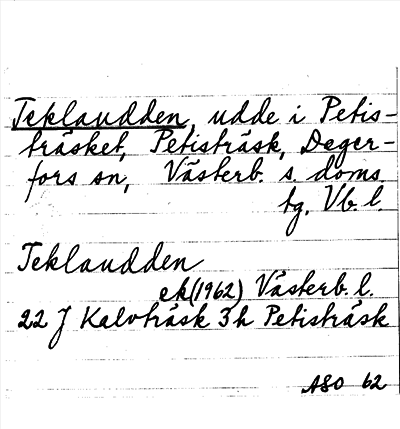 Teklaudden, udde i Petis-
träsket, Petisträsk, Deger-
fors sn, Västerb. s. doms.
tg, Vb. l.
Teklaudden
ek(1962) Västerb. l.
22 J Kalvträsk 3h Petisträsk
ASO 62